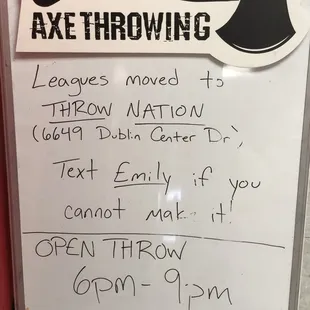 AXE THROWING
Leagues moved to
THROW NATION
(6649 Dublin Center Dr),
Text Emily if you
cannot mak it!
OPEN THROW
6pm - 9pm